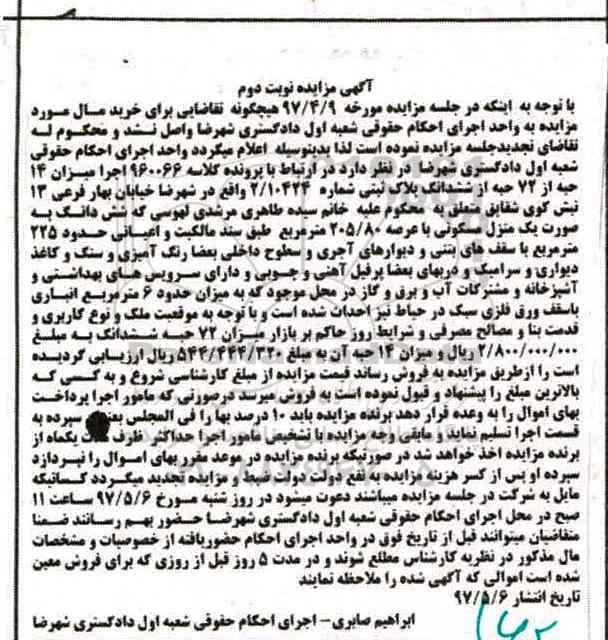 آگهی مزایده نوبت دوم
با توجه به اینکه در جلسه مزایده مورخه ۹۷/۴/۹ هیچگونه تقاضایی برای خرید مال مورد
مزایده به واحد اجرای احکام حقوقی شعبه اول دادگستری شهرضا واصل نشد و محکوم له
تقاضای تجدیدجلسه مزایده نموده است لذا بدینوسیله اعلام میگردد واحد اجرای احکام حقوقی
شعبه اول دادگستری شهرضا در نظر دارد در ارتباط با پرونده کلاسه ۹۶۰۰۶۶ اجرا میزان ۱۴
حبه از ۷۲ حبه از ششدانگ پلاک ثبتی شماره ۲/۱۰۴۲۴ واقع در شهرضا خیابان بهار فرعی ۱۳
نبش کوی شقایق متعلق به محکوم علیه خانم سیده طاهری مرشدی لهوسی که شش دانگ به
صورت یک منزل مسکونی با عرصه ۲۰۵/۸۰ مترمربع طبق سند مالکیت و اعیانی حدود ۲۲۵
مترمربع با سقف های بتنی و دیوارهای آجری و سطوح داخلی بعضا رنگ آمیزی و سنگ و کاغذ
دیواری و سرامیک و دربهای بعضا پرفیل آهنی و چوبی و دارای سرویس های بهداشتی و
آشپزخانه و مشترکات آب و برق و گاز در محل موجود که به میزان حدود ۶ مترمربع انباری
باسقف ورق فلزی سبک در حیاط نیز احداث شده است و با توجه به موقعیت ملک و نوع کاربری و
قدمت بنا و مصالح مصرفی و شرایط روز حاکم بر بازار میزان ۷۲ حبه ششدانگ به مبلغ
۲/۸۰۰/۰۰۰/۰۰۰ ریال و میزان ۱۴ حبه آن به مبلغ ۵۴۴/۴۴۴/۳۲۰ ریال ارزیابی گردیده
است را ازطریق مزایده به فروش رساند قیمت مزایده از مبلغ کارشناسی شروع و به کسی که
بالاترین مبلغ را پیشنهاد و قبول نموده است به فروش میرسد درصورتی که مامور اجرا پرداخت
بهای اموال را به وعده قرار دهد برنده مزایده باید ۱۰ درصد بها را فی المجلس سپرده به
قسمت اجرا تسلیم نماید و مابقی وجه مزایده با تشخیص مامور اجرا حداکثر ظرف مدت یکماه از
برنده مزایده اخذ خواهد شد در صورتیکه برنده مزایده در موعد مقرر بهای اموال را نپردازد
سپرده او پس از کسر هزینه مزایده به نفع دولت دولت ضبط و مزایده تجدید میگردد کسانیکه
مایل به شرکت در جلسه مزایده میباشند دعوت میشود در روز شنبه مورخ ۹۷/۵/۶ ساعت ۱۱
صبح در محل اجرای احکام حقوقی شعبه اول دادگستری شهرضا حضور بهم رسانند ضمنا
متقاضیان میتوانند قبل از تاریخ فوق در واحد اجرای احکام حضوریافته از خصوصیات و مشخصات
مال مذکور در نظریه کارشناس مطلع شوند و در مدت ۵ روز قبل از روزی که برای فروش معین
شده است اموالی که آگهی شده را ملاحظه نمایند
تاریخ انتشار ۹۷/۵/۶
ابراهیم صابری – اجرای احکام حقوقی شعبه اول دادگستری شهرضا